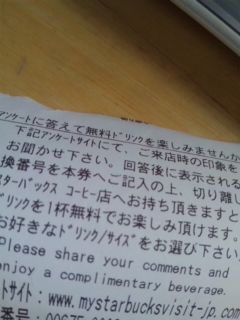 アンケートに答えて無料ドリンクを楽しみませんか
下記アンケートサイトにて、ご来店時の印象を
お聞かせ下さい。回答後に表示される
換番号を本券へご記入の上、切り離し
ターバックス コーヒー店へお持ち頂きますと
ドリンクを1杯無料でお楽しみ頂けます。
お好きなドリンク/サイズをお選び下さい
Please share your comments and
enjoy a complimentary beverage.
ートサイト:www.mystarbucksvisit-jp.com
番号: